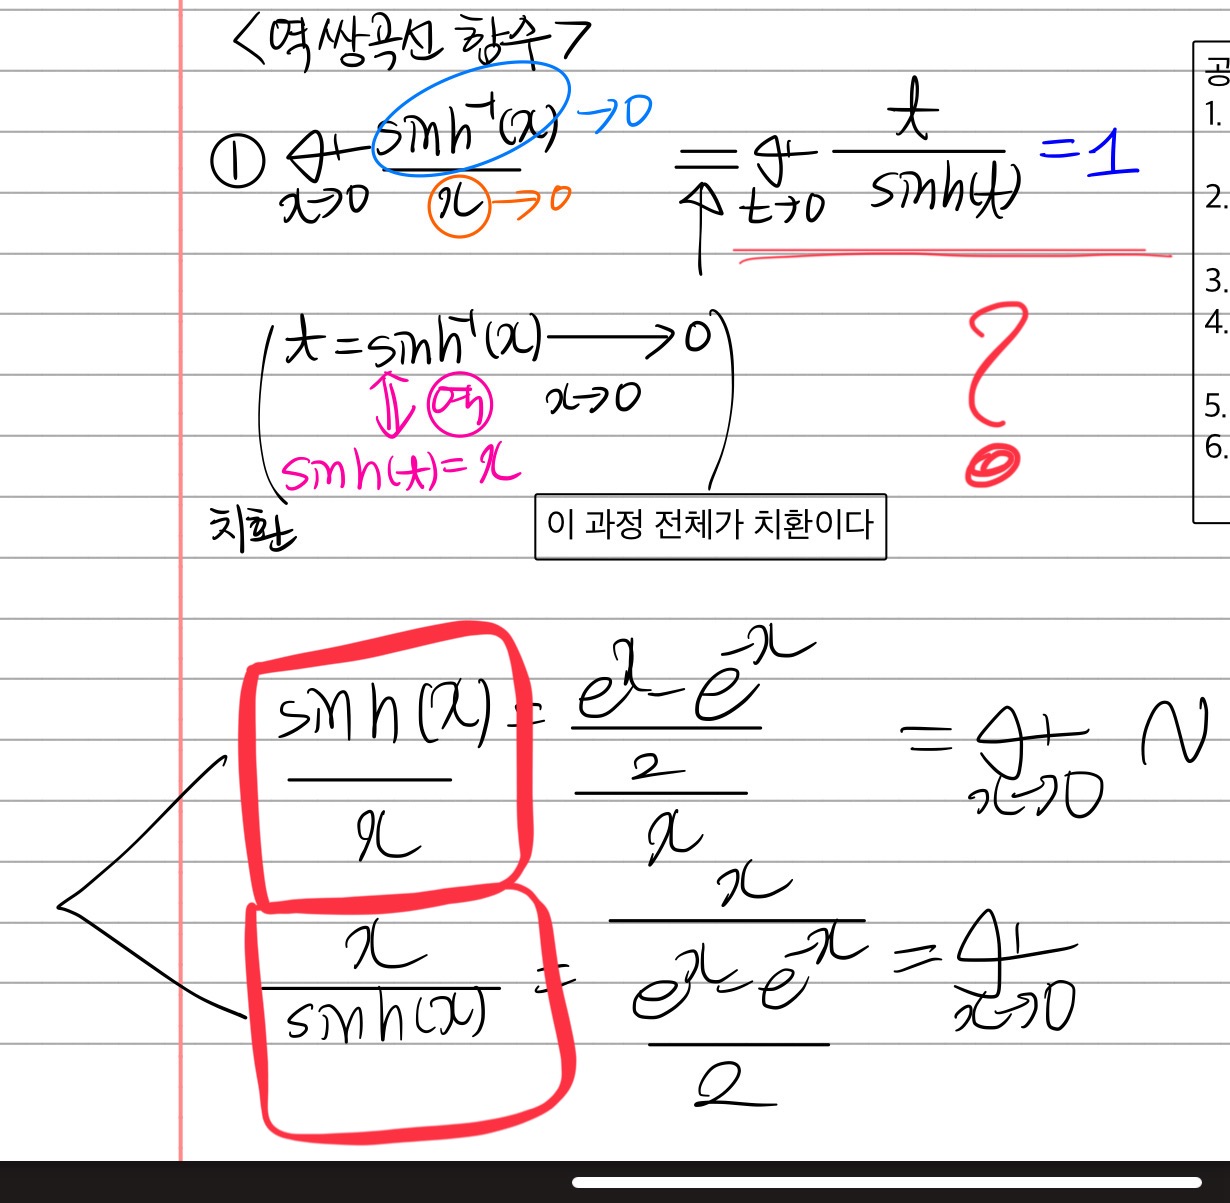 <역쌍곡선 함수>
① lim x→0 sinh⁻¹(x) →0 / x →0 = lim t→0 t / sinh(t) = 1
( t = sinh⁻¹(x) ⟶ 0 )
x→0
sinh(t) = x
?
치환
이 과정 전체가 치환이다
공
1.
2.
3.
4.
5.
6.
sinh(x) / x = (eˣ - e⁻ˣ / 2) / x = lim x→0 ~
x / sinh(x) = x / (eˣ - e⁻ˣ / 2) = lim x→0